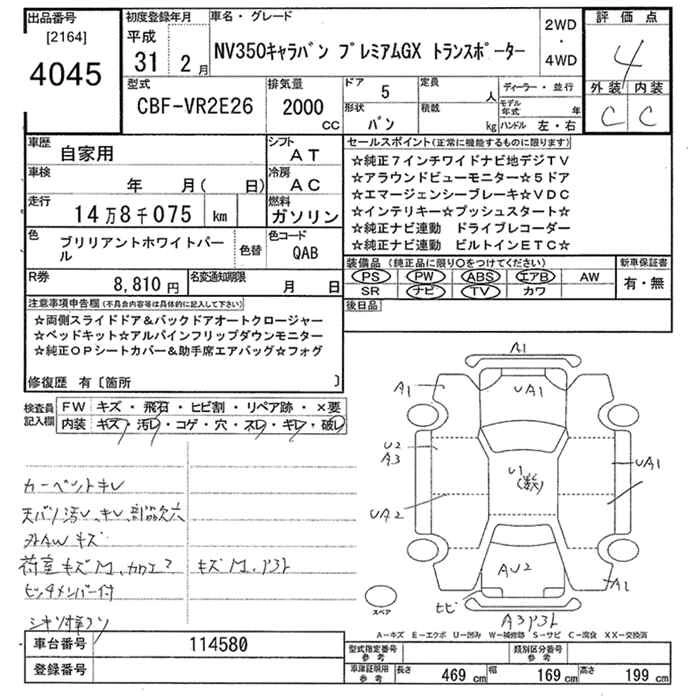 出品番号
[2164]
4045
初度登録年月
平成
31 2月
車名・グレード
NV350キャラバン プレミアムGX トランスポーター
2WD
・
4WD
評価点
4
外装 内装
C C
型式
CBF-VR2E26
排気量
2000
CC
ドア
5
定員
人
形状
バン
積載
kg
ディーラー・並行
モデル年式 年
ハンドル 左・右
車歴
自家用
シフト
AT
車検
年 月( 日)
冷房
AC
走行
14万8千075 km
燃料
ガソリン
色
ブリリアントホワイトパール
色替
色コード
QAB
R券
8,810円
名変通知期限
月 日
セールスポイント(正常に機能するものに限ります)
☆純正7インチワイドナビ地デジTV
☆アラウンドビューモニター☆5ドア
☆エマージェンシーブレーキ☆VDC
☆インテリキー☆プッシュスタート☆
☆純正ナビ連動 ドライブレコーダー
☆純正ナビ連動 ビルトインETC☆
装備品(純正品に限り○をつけてください)
PS PW ABS エアB AW
SR ナビ TV カワ
新車保証書
有・無
後日品
注意事項申告欄(不具合内容等は具体的に記入して下さい)
☆両側スライドドア&バックドアオートクロージャー
☆ベッドキット☆アルパインフリップダウンモニター
☆純正OPシートカバー&助手席エアバッグ☆フォグ
修復歴 有〔箇所 〕
検査員記入欄
FW キズ・飛石・ヒビ割・リペア跡・×要
内装 キズ・汚レ・コゲ・穴・スレ・キレ・破レ
カーペットキレ
天バリ汚レ、キレ、部品欠
外AWキズ
荷室キズM、カワエマ キズM、アスト
ヒッチメンバー付
A1
A1
UA1
U2
A3
U1
(数)
UA1
UA2
AU2
A1
ヒビ
スペア
A-キズ E-エクボ U-凹み W-補修跡 S-サビ C-腐食 XX-交換済
車台番号
114580
登録番号
型式指定番号
参考
類別区分番号
参考
車庫証明用
参考
長さ 469 cm
幅 169 cm
高さ 199 cm